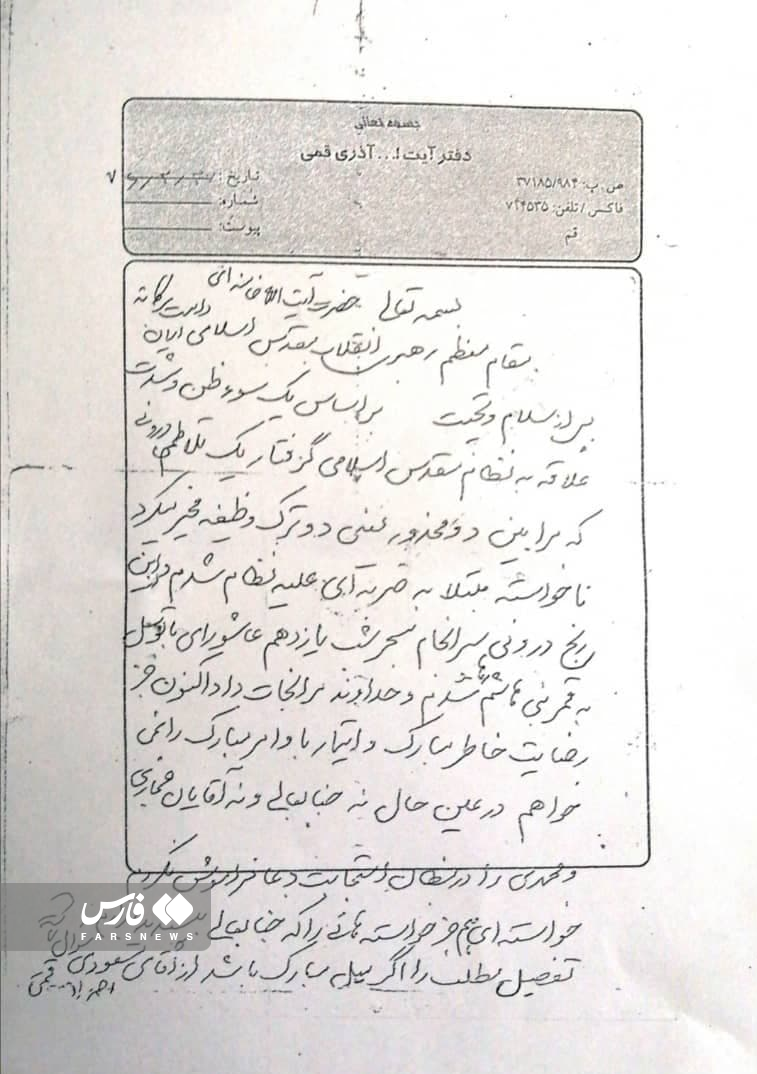 بسمه تعالی
دفتر آیت ا... آذری قمی
ص. پ: ۳۷۱۸۵/۹۸۴
فاکس / تلفن: ۷۴۴۵۳۵
قم
تاریخ:
شماره:
پیوست:
بسمه تعالی حضرت آیت الله خامنه‌ای دامت برکاته
مقام معظم رهبری انقلاب مقدس اسلامی ایران
پس از سلام و تحیت بر اساس یک سوء ظن و شدت
علاقه به نظام مقدس اسلامی گرفتار یک تلاطم درونی
که مرا بین دو محذور یعنی و ترک وظیفه مخیر میکرد
ناخواسته مبتلا به ضربه‌ای علیه نظام شدم و این
رنج درونی سرانجام سحر شب یازدهم عاشورای با توسل
به قمر بنی هاشم شدم و خداوند مرا نجات داد اکنون جز
رضایت خاطر مبارک و ایتمار با وامر مبارک را نمی
خواهم در عین حال نه جنابعالی و نه آقایان
و محمدی را در مظان استجابت دعا فراموش نکرده
خواسته‌ای هم جز خواسته هائی را که جنابعالی
تفصیل مطلب را اگر میل مبارک باشد از آقای مسعودی
فارس
FARSNEWS